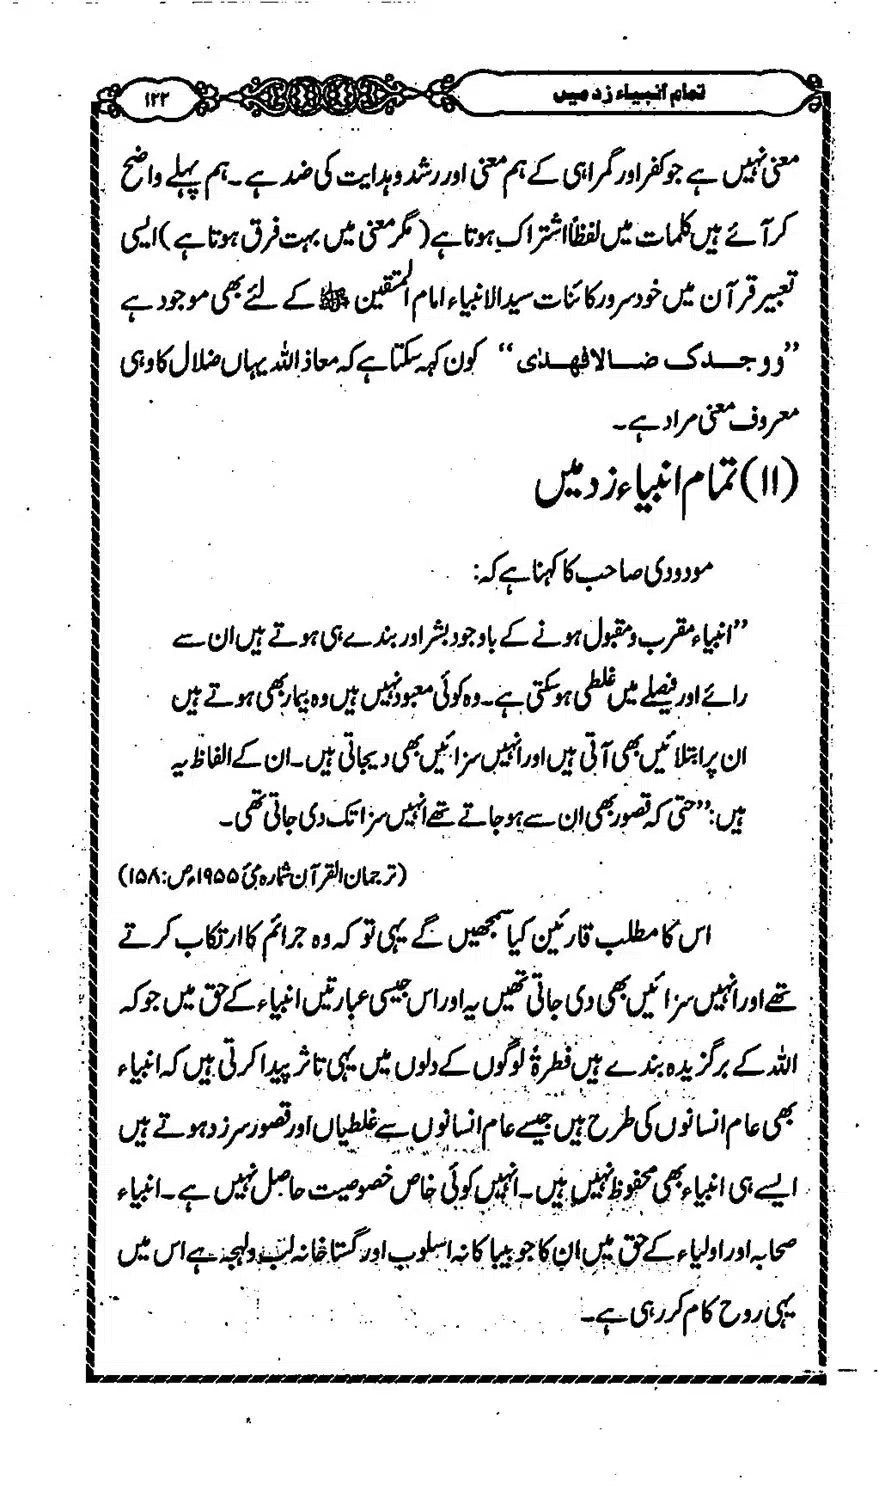 تمام انبیاء زد میں
۱۲۲
معنی نہیں ہے جو کفر اور گمراہی کے ہم معنی اور رشد و ہدایت کی ضد ہے۔ ہم پہلے واضح
کر آئے ہیں کلمات میں لفظاً اشتراک ہوتا ہے (مگر معنی میں بہت فرق ہوتا ہے) ایسی
تعبیر قرآن میں خود سرور کائنات سید الانبیاء امام المتقین ﷺ کے لئے بھی موجود ہے
”ووجدک ضالا فھدیٰ“ کون کہہ سکتا ہے کہ معاذ اللہ یہاں ضلال کا وہی
معروف معنی مراد ہے۔
(۱۱) تمام انبیاء زد میں
مودودی صاحب کا کہنا ہے کہ:
”انبیاء مقرب و مقبول ہونے کے باوجود بشر اور بندے ہی ہوتے ہیں ان سے
رائے اور فیصلے میں غلطی ہو سکتی ہے۔ وہ کوئی معبود نہیں ہیں وہ بیمار بھی ہوتے ہیں
ان پر ابتلائیں بھی آتی ہیں اور انہیں سزائیں بھی دیجاتی ہیں۔ ان کے الفاظ یہ
ہیں: ”حتی کہ قصور بھی ان سے ہو جاتے تھے انہیں سزا تک دی جاتی تھی۔
(ترجمان القرآن شمارہ مئی ۱۹۵۵ء ص: ۱۵۸)
اس کا مطلب قارئین کیا سمجھیں گے یہی تو کہ وہ جرائم کا ارتکاب کرتے
تھے اور انہیں سزائیں بھی دی جاتی تھیں یہ اور اس جیسی عبارتیں انبیاء کے حق میں جو کہ
اللہ کے برگزیدہ بندے ہیں فطرۃً لوگوں کے دلوں میں یہی تاثر پیدا کرتی ہیں کہ انبیاء
بھی عام انسانوں کی طرح ہیں جیسے عام انسانوں سے غلطیاں اور قصور سرزد ہوتے ہیں
ایسے ہی انبیاء بھی محفوظ نہیں ہیں۔ انہیں کوئی خاص خصوصیت حاصل نہیں ہے۔ انبیاء
صحابہ اور اولیاء کے حق میں ان کا جو بیباکانہ اسلوب اور گستاخانہ لب ولہجہ ہے اس میں
یہی روح کام کر رہی ہے۔